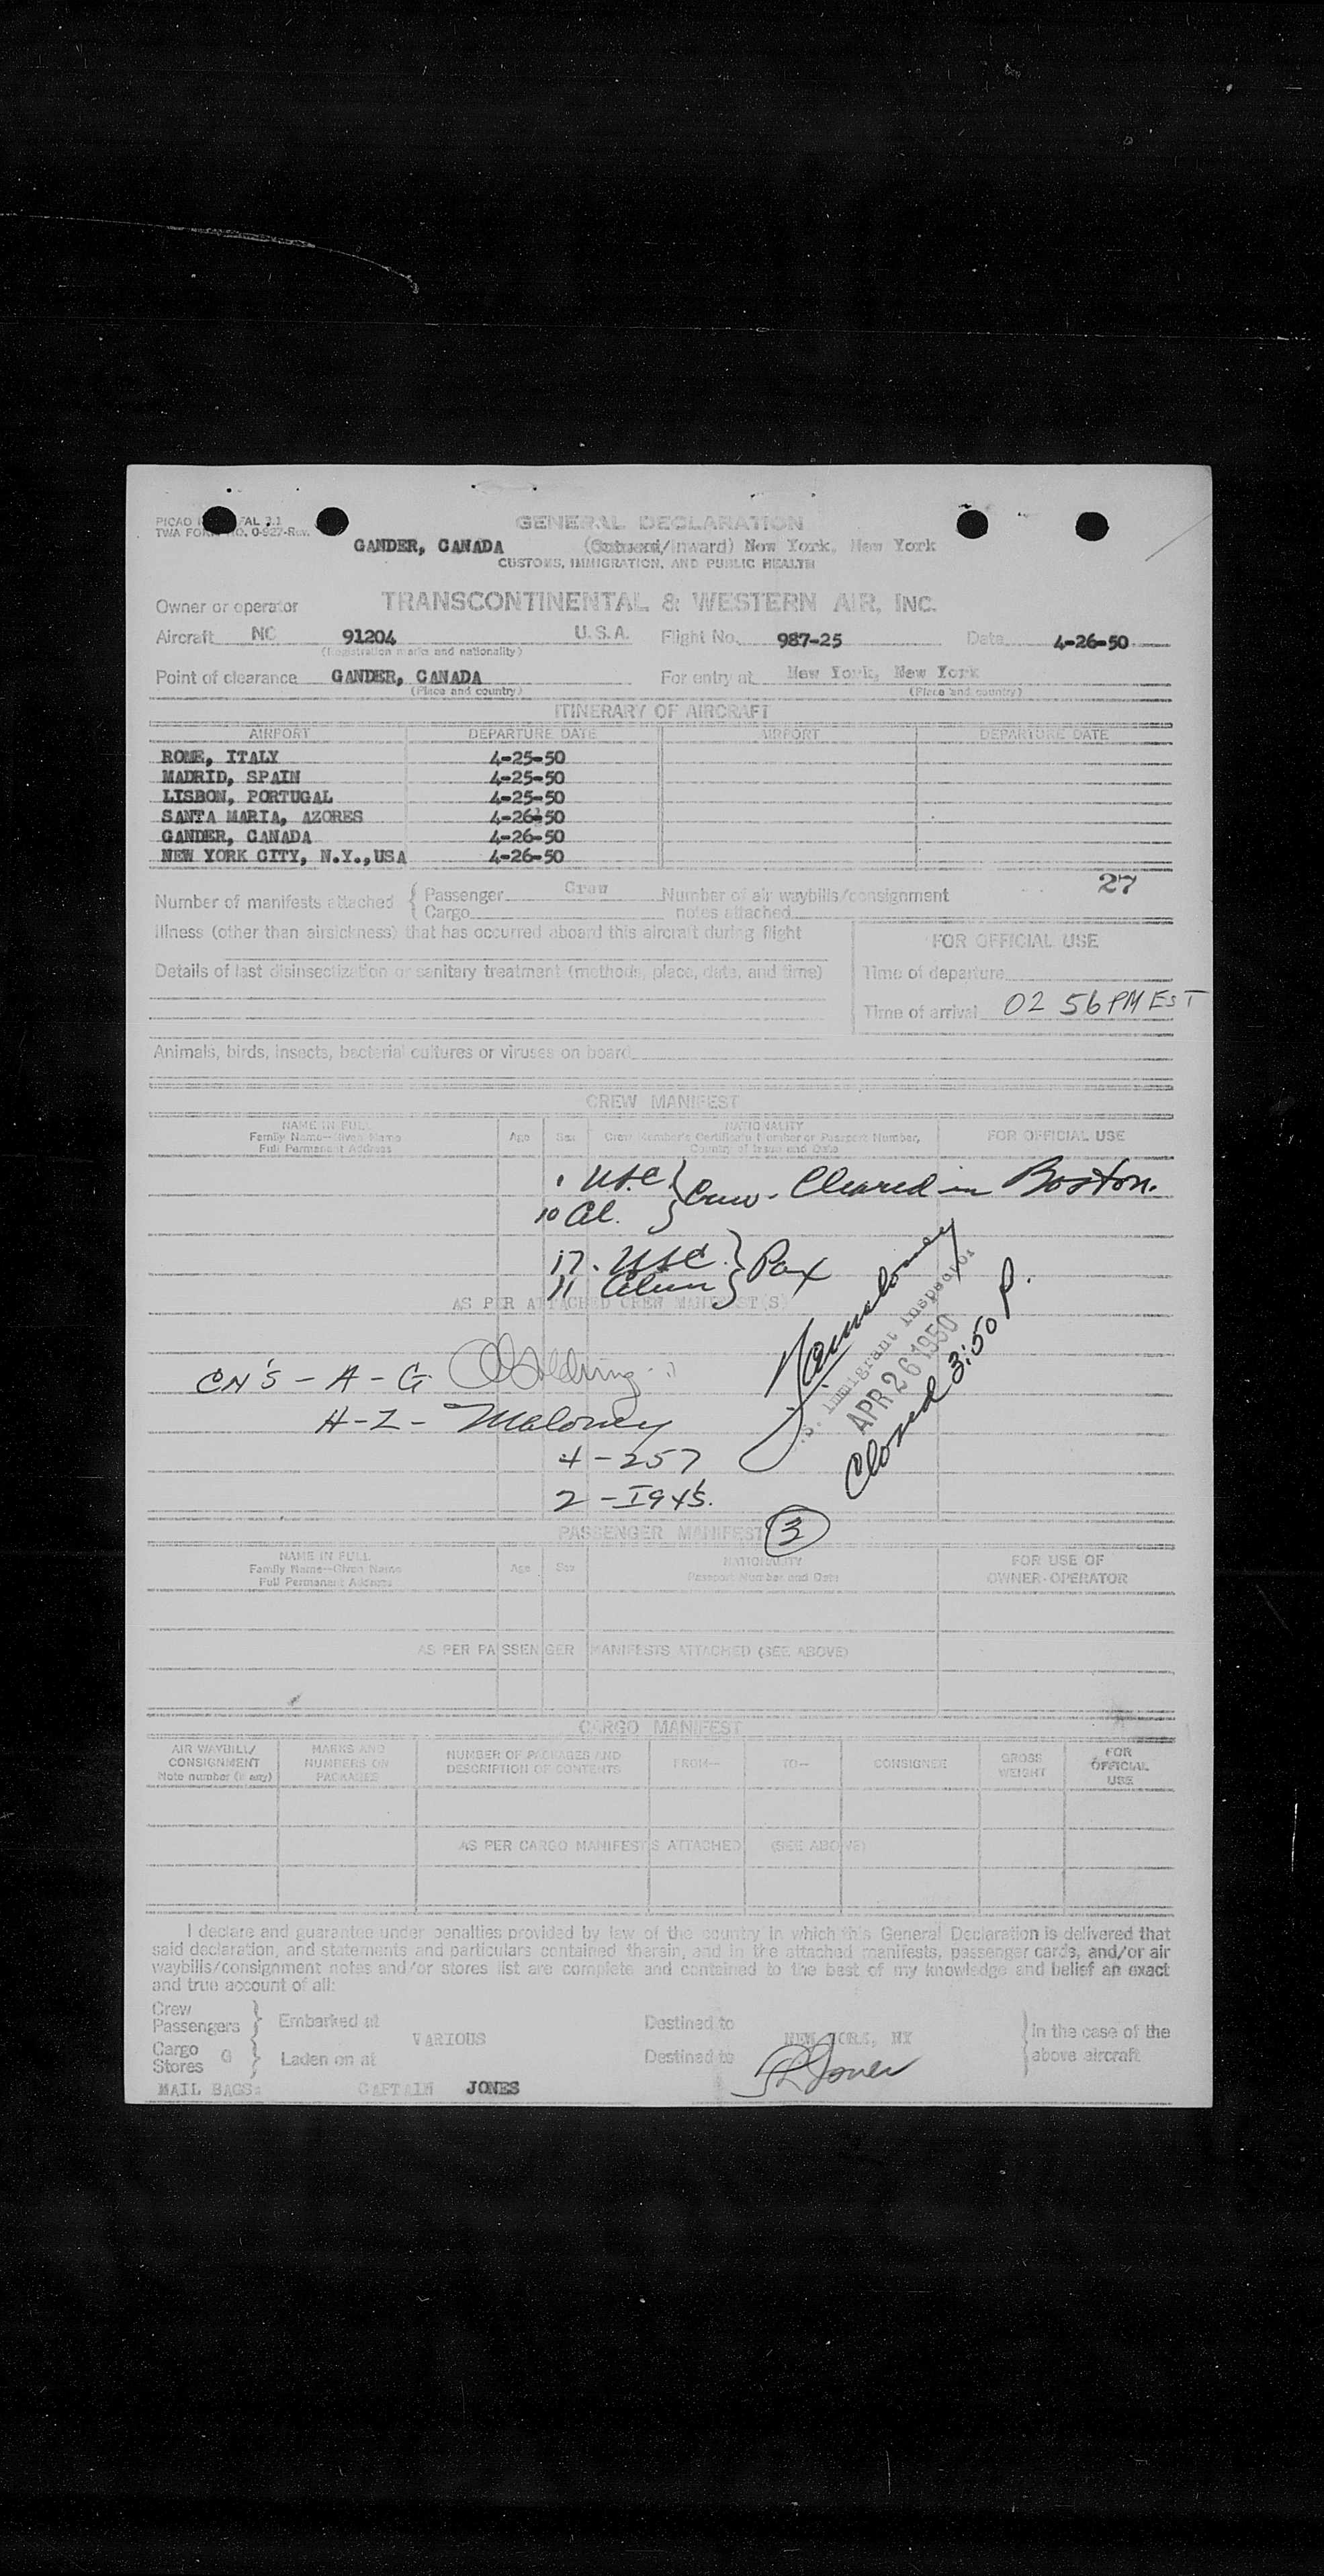 GENERAL DECLARATION
GANDER, CANADA (Outward/Inward) New York, New York
CUSTOMS, IMMIGRATION, AND PUBLIC HEALTH
TWA FORM NO. 0-927-Rev.
Owner or operator TRANSCONTINENTAL & WESTERN AIR, INC.
Aircraft NC 91204 U.S.A. Flight No. 987-25 Date 4-26-50
(Registration marks and nationality)
Point of clearance GANDER, CANADA For entry at New York, New York
(Place and country) (Place and country)
ITINERARY OF AIRCRAFT
AIRPORT DEPARTURE DATE AIRPORT DEPARTURE DATE
ROME, ITALY 4-25-50
MADRID, SPAIN 4-25-50
LISBON, PORTUGAL 4-25-50
SANTA MARIA, AZORES 4-26-50
GANDER, CANADA 4-26-50
NEW YORK CITY, N.Y.,USA 4-26-50
27
Number of manifests attached { Passenger Crew Number of air waybills/consignment
Cargo notes attached
Illness (other than airsickness) that has occurred aboard this aircraft during flight
FOR OFFICIAL USE
Details of last disinsectization or sanitary treatment (methods, place, date, and time)
Time of departure
Time of arrival 02 56 PM EST
Animals, birds, insects, bacterial cultures or viruses on board
CREW MANIFEST
NAME IN FULL Age Sex NATIONALITY FOR OFFICIAL USE
Family Name—Given Name Crew Member's Certificate Number or Passport Number,
Full Permanent Address Country of Issue and Date
1 USC } Crew - Cleared in Boston.
10 Al.
17. USC } Pax
11 Alien
AS PER ATTACHED CREW MANIFEST(S)
Maloney
U.S. Immigrant Inspector
APR 26 1950
Closed 3:50 P.
CN'S - A - G Golding
H-Z - Maloney
4 - 257
2 - I94's.
PASSENGER MANIFEST 3
NAME IN FULL Age Sex NATIONALITY FOR USE OF
Family Name—Given Name Passport Number and Date OWNER-OPERATOR
Full Permanent Address
AS PER PASSENGER MANIFESTS ATTACHED (SEE ABOVE)
CARGO MANIFEST
AIR WAYBILL/ MARKS AND NUMBER OF PACKAGES AND FROM— TO— CONSIGNEE GROSS FOR
CONSIGNMENT NUMBERS ON DESCRIPTION OF CONTENTS WEIGHT OFFICIAL
Note number (if any) PACKAGES USE
AS PER CARGO MANIFESTS ATTACHED (SEE ABOVE)
I declare and guarantee under penalties provided by law of the country in which this General Declaration is delivered that
said declaration, and statements and particulars contained therein, and in the attached manifests, passenger cards, and/or air
waybills/consignment notes and/or stores list are complete and contained to the best of my knowledge and belief an exact
and true account of all:
Crew
Passengers } Embarked at Destined to In the case of the
VARIOUS NEW YORK, NY
Cargo
Stores G } Laden on at Destined to above aircraft
Jones
MAIL BAGS: CAPTAIN JONES